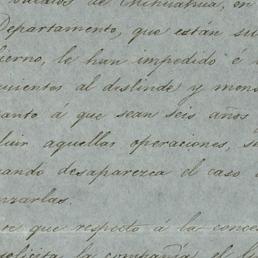 de Chihuahua, en
Departamento, que están su
ierno, le han impedido é
uientes al deslinde y mens
anto á que sean seis años
luir aquellas operaciones, s
uando desaparezca el caso
nzarlas.
re que respecto á la conce
solicita la compañía el